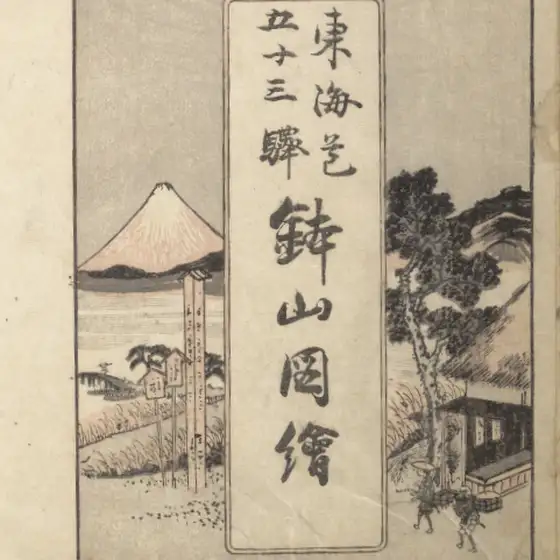 東海道
五十三驛
鉢山圖繪